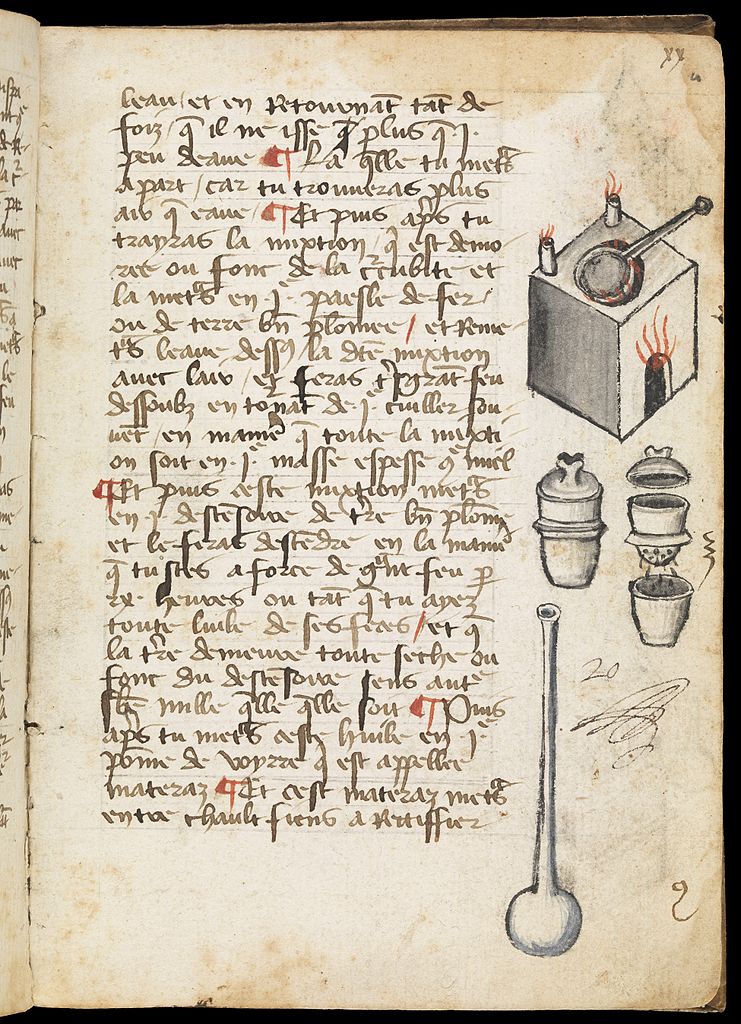 xx
leau / et en Retournāt tāt de
foiz q̄ il ne isse q̄ plus q̄ .j.
peu deaue ¶ La q̄lle tu mett̄s
a part / car tu trouueras plus
aix q̄ eaue / ¶ Et puis ap̄s tu
trayras la mixtion / q̄ est demo-
ree ou fonc de la cucubite et
la mett̄s en .jᵉ. paesle de fer /
ou de terre bn̄ plōmee / et Reme-
tt̄s leaue dess9 la dc̄te mixtion
auec laix / et feras tp̄grāt feu
dessoubz en tonāt de .jᵉ. cuiller sou-
uēt / en mamē q̄ toute la mixti-
on soit en .jᵉ. masse espesse 9ᵉ miel
¶ Et puis ceste mixtion mett̄s
en .j. descēsoire de tr̄e bn̄ plōme
et le feras descēdre en la mamē
q̄ tu sces a force de gnt̄ feu p̄
xx. heures ou tāt q̄ tu ayez
toute luile de ses feces / et q̄
la tr̄e demeure toute seche ou
fonc du descēsoire sens autē
mille q̄lle q̄lle soit ¶ Puis
ap̄s tu mett̄s ceste huile en .jᵉ.
pōme de voyrre q̄ est appellee
materaz ¶ Et cest materaz mett̄s
entre chault fiens a Rectiffier
20